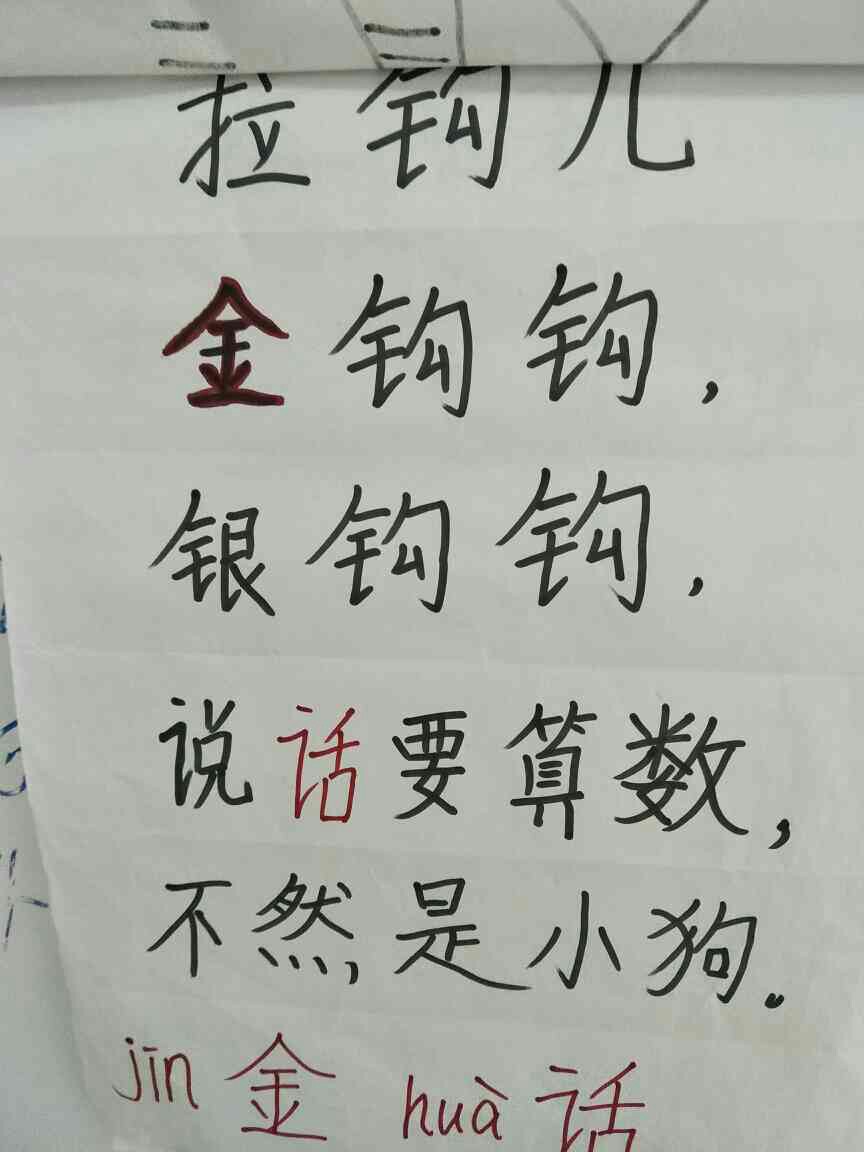 拉钩儿
金钩钩,
银钩钩,
说话要算数,
不然是小狗。
jīn 金 huà 话